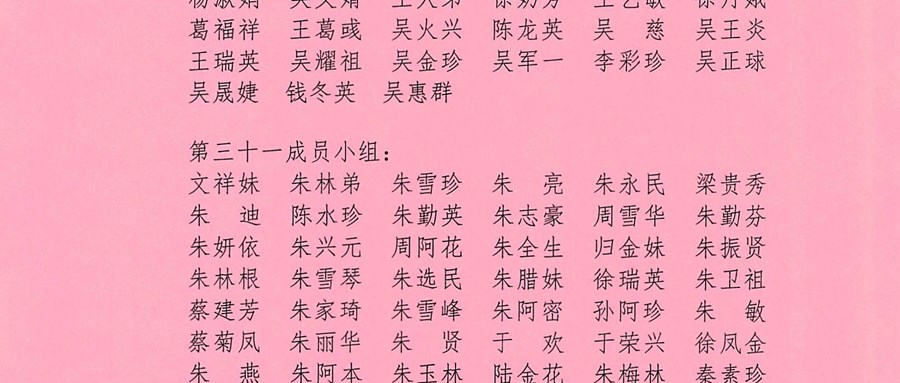 葛福祥 王葛彧 吴火兴 陈龙英 吴 慈 吴王炎
王瑞英 吴耀祖 吴金珍 吴军一 李彩珍 吴正球
吴晟婕 钱冬英 吴惠群
第三十一成员小组：
文祥妹 朱林弟 朱雪珍 朱 亮 朱永民 梁贵秀
朱 迪 陈水珍 朱勤英 朱志豪 周雪华 朱勤芬
朱妍依 朱兴元 周阿花 朱全生 归金妹 朱振贤
朱林根 朱雪琴 朱选民 朱腊妹 徐瑞英 朱卫祖
蔡建芳 朱家琦 朱雪峰 朱阿密 孙阿珍 朱 敏
蔡菊凤 朱丽华 朱 贤 于 欢 于荣兴 徐凤金
朱 燕 朱阿本 朱玉林 陆金花 朱梅林 秦素珍